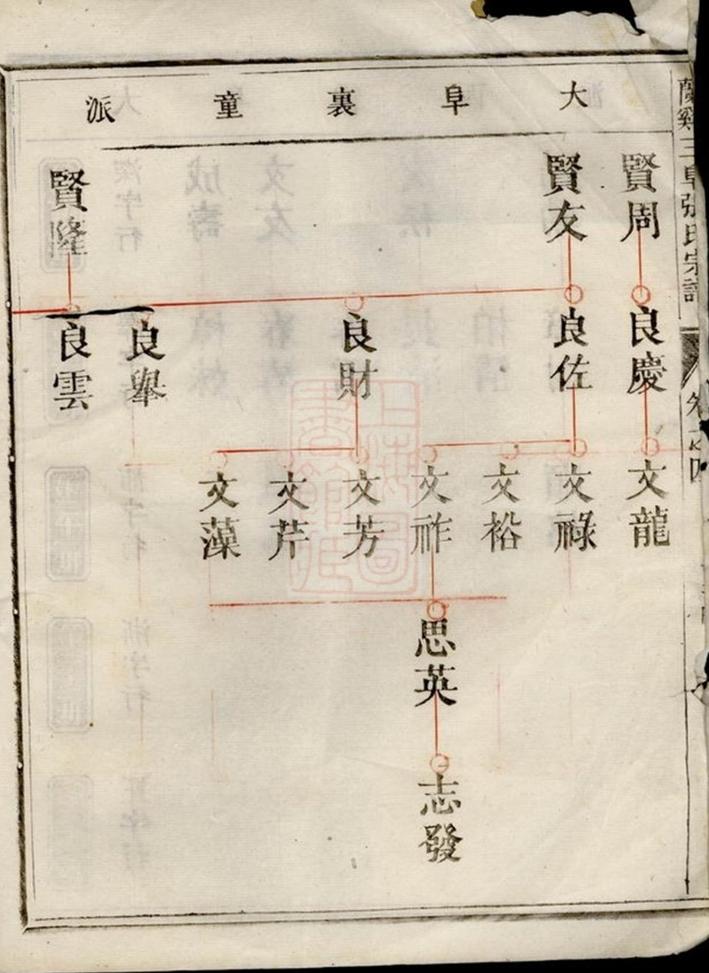 蘭谿三阜張氏宗譜
卷之四
大阜裏童派
賢周
賢友
賢隆
良慶
良佐
良財
良舉
良雲
文龍
文祿
文裕
文祚
文芳
文芹
文藻
思英
志發
上海圖書館藏